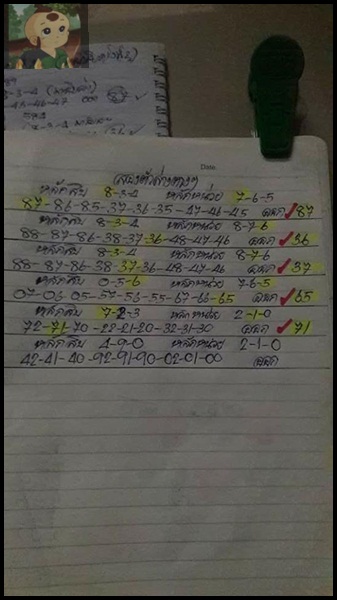 3-4
Date
สองตัวล่างตรงๆ
หลักสิบ 8-3-4 หลักหน่วย 7-6-5
87-86-85-37-36-35-47-46-45 ออก ✓ 87
หลักสิบ 8-3-4 หลักหน่วย 8-7-6
88-87-86-38-37-36-48-47-46 ออก ✓ 36
หลักสิบ 8-3-4 หลักหน่วย 8-7-6
88-87-86-38-37-36-48-47-46 ออก ✓ 37
หลักสิบ 0-5-6 หลักหน่วย 7-6-5
07-06-05-57-56-55-67-66-65 ออก ✓ 65
หลักสิบ 7-2-3 หลักหน่วย 2-1-0
72-71-70-22-21-20-32-31-30 ออก ✓ 71
หลักสิบ 4-9-0 หลักหน่วย 2-1-0
42-41-40-92-91-90-02-01-00 ออก